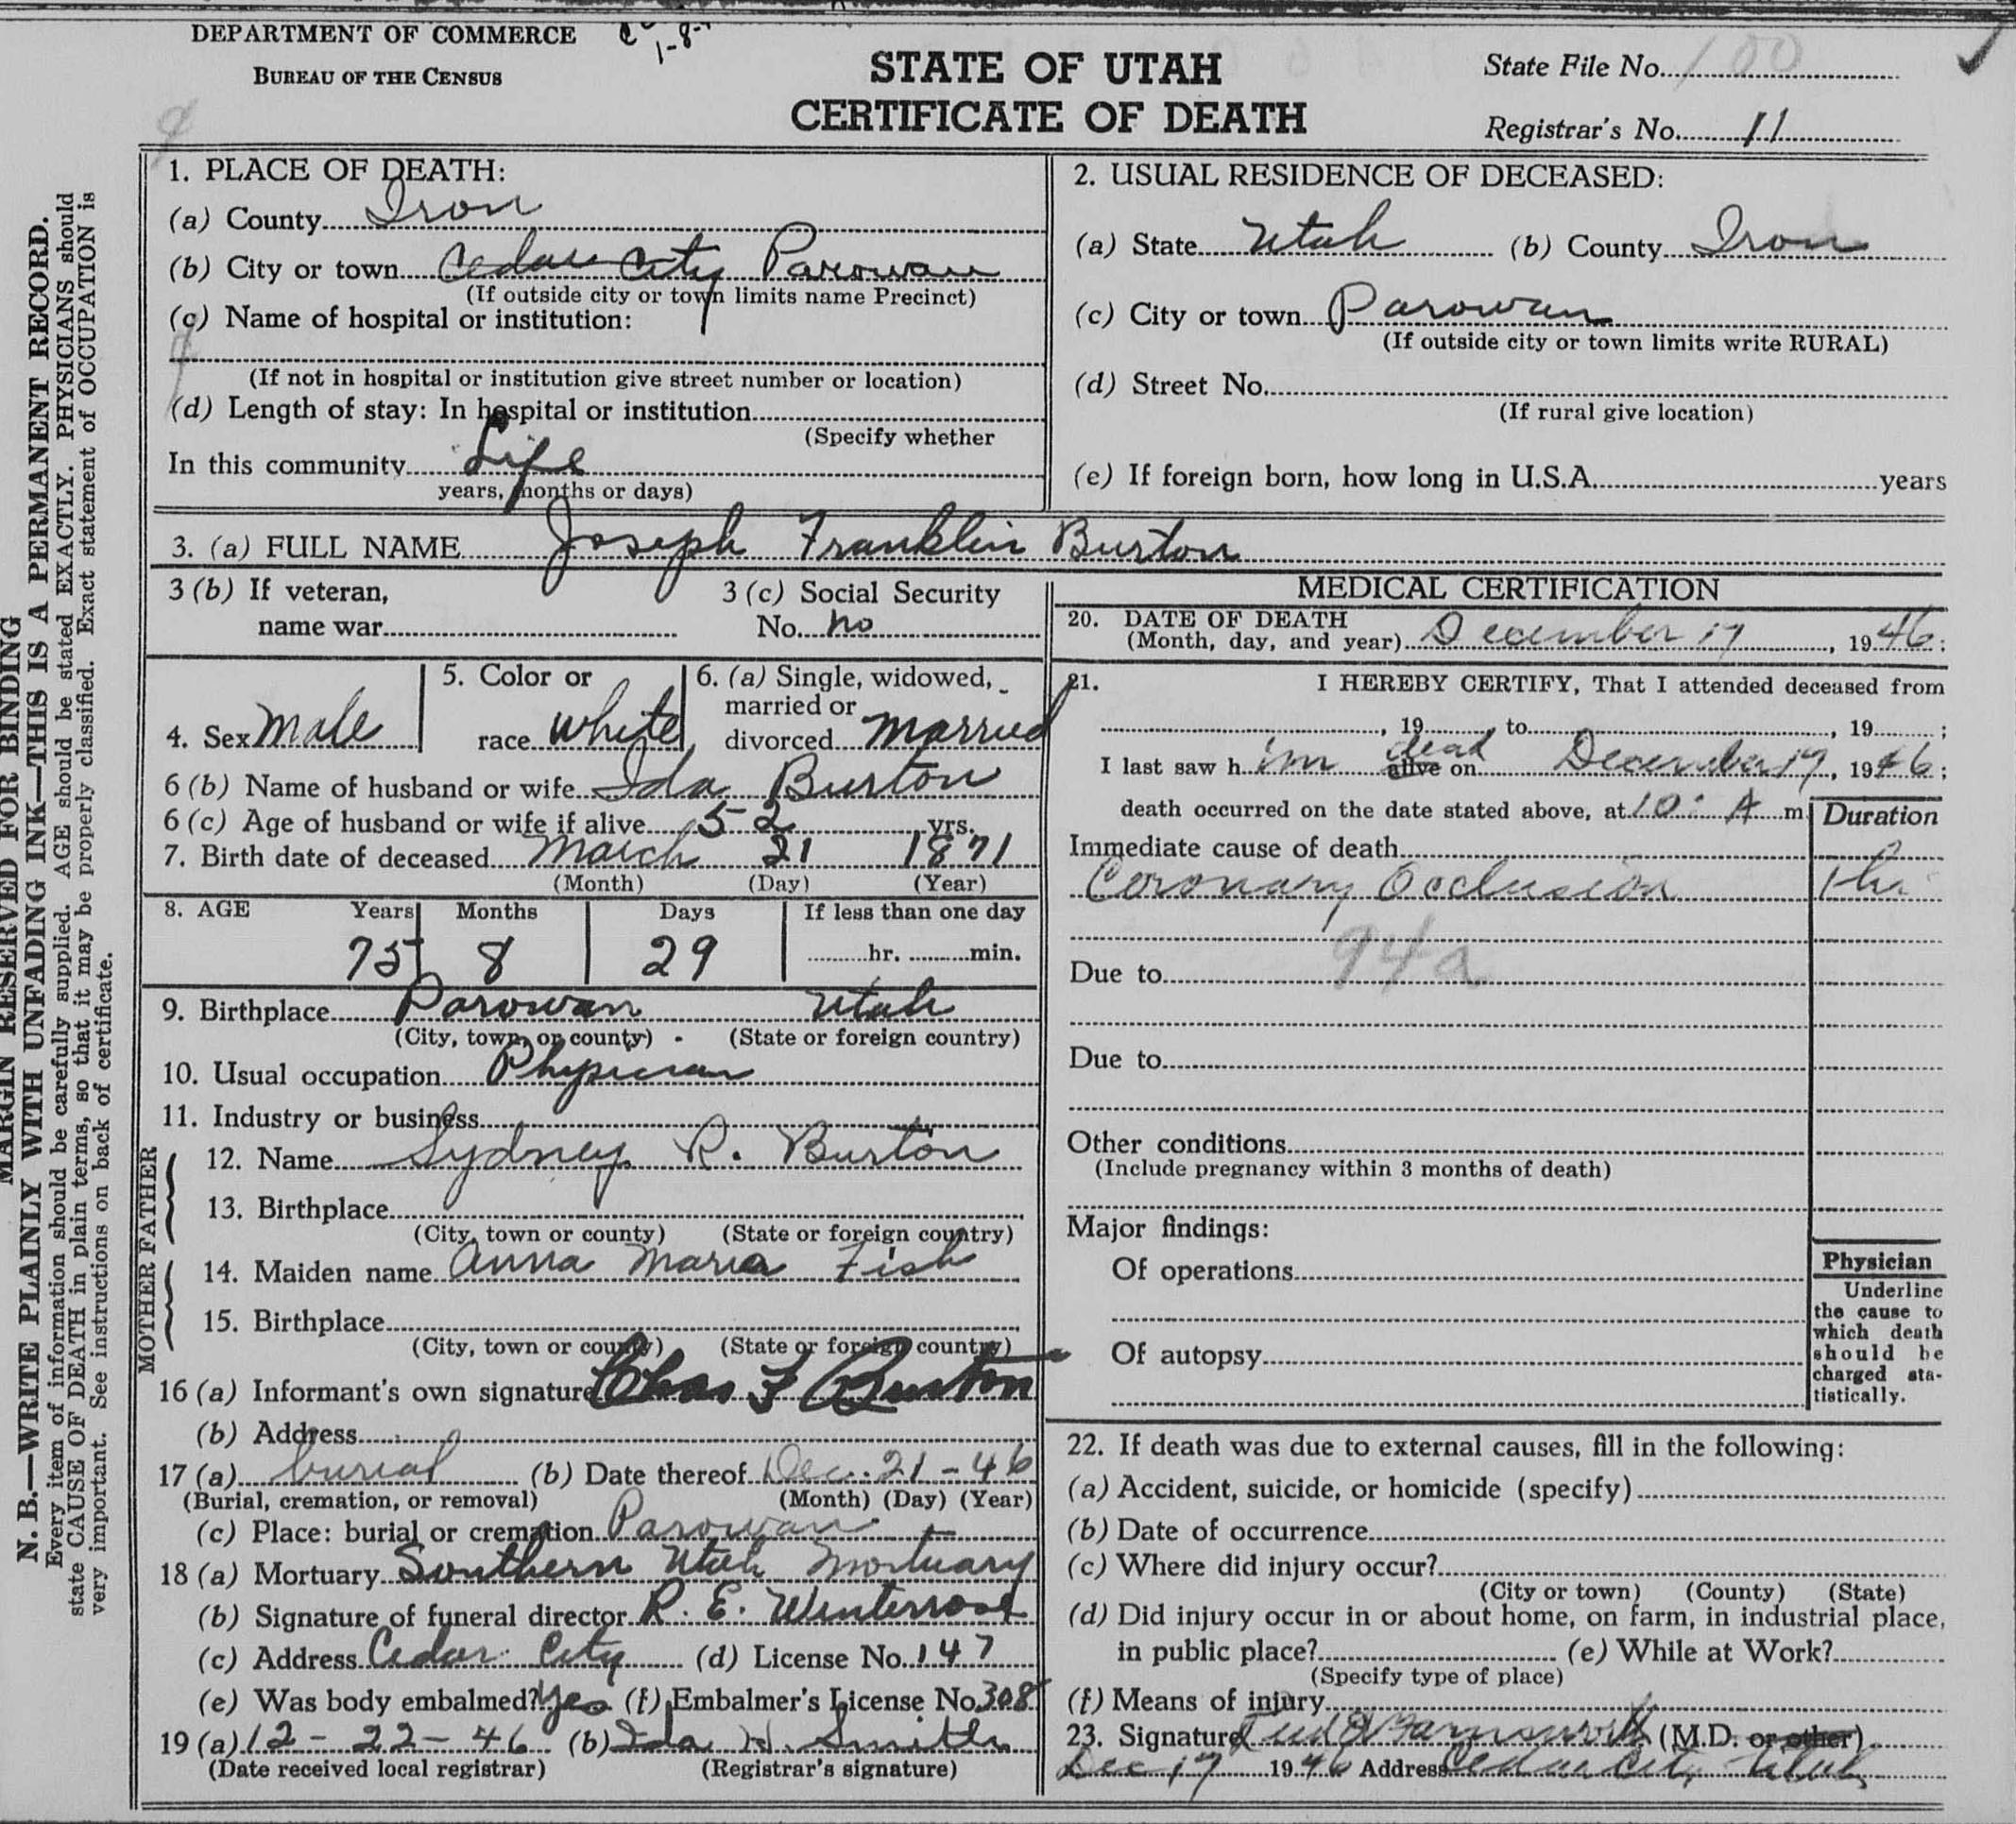 DEPARTMENT OF COMMERCE
BUREAU OF THE CENSUS
1-8-
STATE OF UTAH
CERTIFICATE OF DEATH
State File No. 100
Registrar's No. 11
MARGIN RESERVED FOR BINDING
N. B.—WRITE PLAINLY WITH UNFADING INK—THIS IS A PERMANENT RECORD.
Every item of information should be carefully supplied. AGE should be stated EXACTLY. PHYSICIANS should
state CAUSE OF DEATH in plain terms, so that it may be properly classified. Exact statement of OCCUPATION is
very important. See instructions on back of certificate.
1. PLACE OF DEATH:
(a) County Iron
(b) City or town Cedar City Parowan
(If outside city or town limits name Precinct)
(c) Name of hospital or institution:
(If not in hospital or institution give street number or location)
(d) Length of stay: In hospital or institution
(Specify whether
In this community Life
years, months or days)
2. USUAL RESIDENCE OF DECEASED:
(a) State Utah (b) County Iron
(c) City or town Parowan
(If outside city or town limits write RURAL)
(d) Street No.
(If rural give location)
(e) If foreign born, how long in U.S.A. years
3. (a) FULL NAME Joseph Franklin Burton
3 (b) If veteran,
name war
3 (c) Social Security
No. no
4. Sex Male
5. Color or
race White
6. (a) Single, widowed,
married or
divorced Married
6 (b) Name of husband or wife Ida Burton
6 (c) Age of husband or wife if alive 52 yrs.
7. Birth date of deceased March 21 1871
(Month) (Day) (Year)
8. AGE Years Months Days If less than one day
75 8 29 hr. min.
9. Birthplace Parowan Utah
(City, town, or county) (State or foreign country)
10. Usual occupation Physician
11. Industry or business
FATHER
12. Name Sydney R. Burton
13. Birthplace
(City, town or county) (State or foreign country)
MOTHER
14. Maiden name Anna Maria Fish
15. Birthplace
(City, town or county) (State or foreign country)
16 (a) Informant's own signature Chas F Burton
(b) Address
17 (a) burial (b) Date thereof Dec. 21-46
(Burial, cremation, or removal) (Month) (Day) (Year)
(c) Place: burial or cremation Parowan
18 (a) Mortuary Southern Utah Mortuary
(b) Signature of funeral director R. E. Winterrose
(c) Address Cedar City (d) License No. 147
(e) Was body embalmed? Yes (f) Embalmer's License No. 308
19 (a) 12-22-46 (b) Ida H. Smith
(Date received local registrar) (Registrar's signature)
MEDICAL CERTIFICATION
20. DATE OF DEATH
(Month, day, and year) December 19, 1946:
21. I HEREBY CERTIFY, That I attended deceased from
, 19 to , 19 ;
dead
I last saw him alive on December 19, 1946;
death occurred on the date stated above, at 10: A m
Duration
Immediate cause of death
Coronary Occlusion 1 hr
94a
Due to
Due to
Other conditions
(Include pregnancy within 3 months of death)
Major findings:
Of operations
Of autopsy
Physician
Underline
the cause to
which death
should be
charged sta-
tistically.
22. If death was due to external causes, fill in the following:
(a) Accident, suicide, or homicide (specify)
(b) Date of occurrence
(c) Where did injury occur?
(City or town) (County) (State)
(d) Did injury occur in or about home, on farm, in industrial place,
in public place? (e) While at Work?
(Specify type of place)
(f) Means of injury
23. Signature Farnsworth (M.D. or other)
Dec 19 1946 Address Cedar City Utah